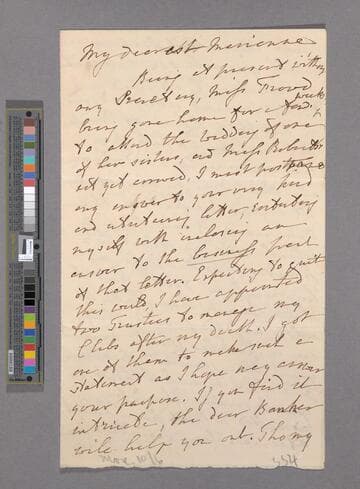 My dearest Marianne
Being at present without
any Secretary, Miss
being gone home for a few weeks
to attend the wedding of one
of her sisters, and Miss
not yet arrived, I must postpone
any answer to your very kind
and interesting letter, contenting
myself with inclosing an
answer to the business part
of that letter. Expecting to quit
this world, I have appointed
two Trustees to manage my
after my death. I got
one of them to make such a
statement as I hope may answer
your purpose. If you find it
intricate, the dear Banker
will help you out. Tho my